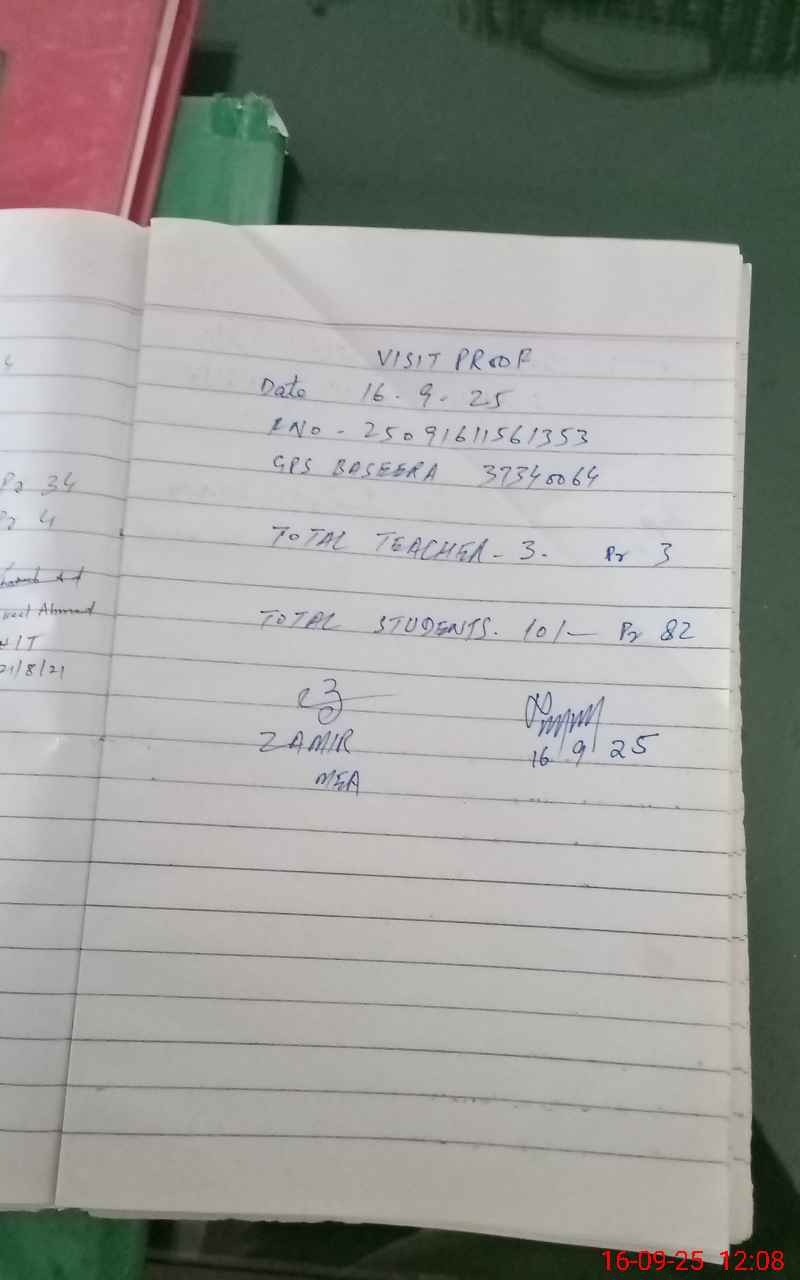 Pr 34
Pr 4
Ahmad
NIT
21/8/21
VISIT PROOF
Date 16-9-25
RNO - 25091611561353
GPS BASEERA 37340064
TOTAL TEACHER - 3. Pr 3
TOTAL STUDENTS. 101- Pr 82
ZAMIR
MEA
16 9 25
16-09-25 12:08